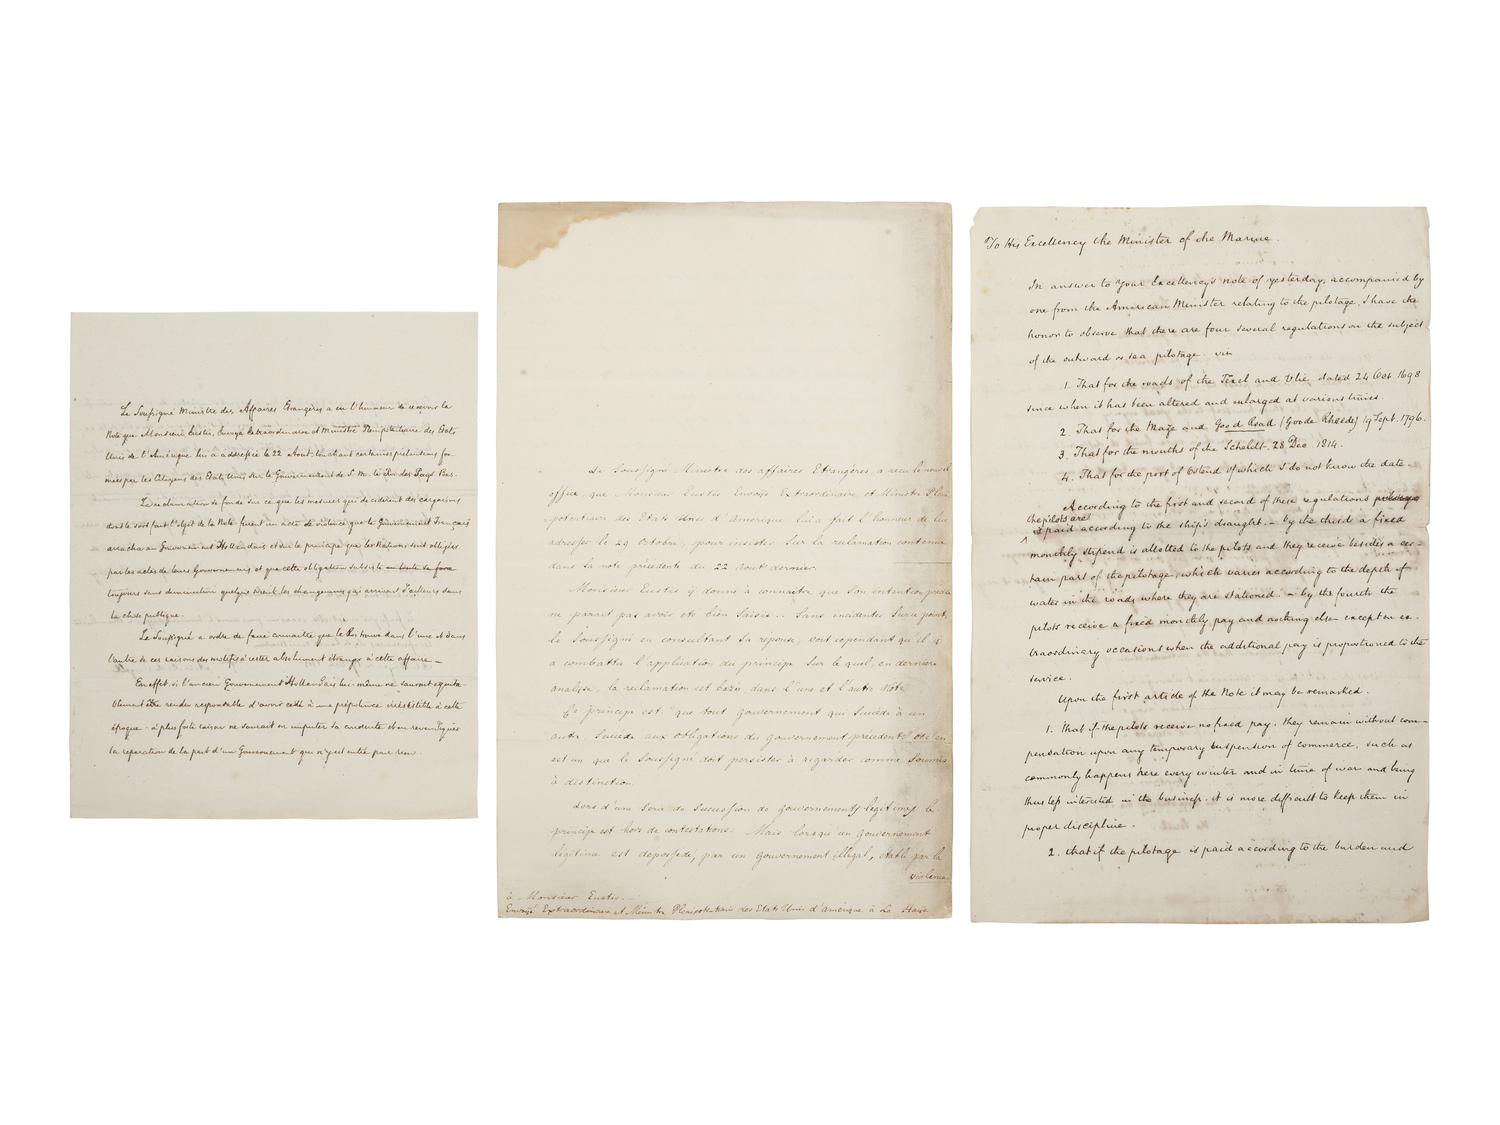 Le Soussigné Ministre des Affaires Etrangères a eu l'honneur de recevoir la
Note que Monsieur Eustis, Envoyé Extraordinaire et Ministre Plenipotentiaire des Etats
Unis de l'Amérique lui a addressée le 22 Aout, touchant certaines pretensions for-
mées par les Citoyens des Etats Unis sur le Gouvernement de S. M. le Roi des Pays Bas.
La réclamation se fonde sur ce que les mesures qui deciderent des cargaisons
dont le sort fait l'objet de la Note furent un acte de violence que le Gouvernement Français
arracha au Gouvernement Hollandais et sur le principe que les Nations sont obligées
par les actes de leurs Gouvernemens et que cette obligation subsiste
toujours sans diminution quelques soient les changemens qui arrivent d'ailleurs dans
la chose publique.
Le Soussigné a ordre de faire connaitre que le Roi trouve dans l'une et dans
l'autre de ces raisons des motifs à rester absolument étranger à cette affaire —
En effet, si l'ancien Gouvernement Hollandais lui-même ne saurait equita-
blement être rendu responsable d'avoir cédé à une prépotence irrésistible à cette
époque - à plus forte raison ne saurait on imputer sa conduite et en revendiquer
la reparation de la part d'un Gouvernement qui n'y est entré pour rien
Le Soussigné Ministre des affaires Etrangères, a recu le nouvel
office, que Monsieur Eustis Envoyé Extraordinaire et Ministre Pleni-
potentiaire des Etats Unis d'Amérique lui a fait l'honneur de lui
adresser le 29 Octobre, pour insister sur la reclamation contenue
dans sa note précédente du 22 aout dernier.
Monsieur Eustis y donne à connaitre que son intention
ne parait pas avoir eté bien saisie .. Sans incidenter sur ce point,
le Soussigné en consultant sa reponse, voit cependant qu'il y
a combattu l'application du principe sur le quel, en derniere
analyse, la reclamation est basée, dans l'une et l'autre Note
Ce principe est "que tout gouvernement qui succède à un
autre, succede aux obligations du gouvernement précédent"
est un que le Soussigné doit persister à regarder comme soumis
à distinction.
Lors d'une serie de Succession de gouvernements légitimes le
principe est hors de contestations. Mais lorsqu'un gouvernement
legitime est depossédé, par un gouvernement illégal, etabli par la
violence
à Monsieur Eustis.
Envoyé Extraordinaire et Ministre Plenipotentiaire des Etats Unis d'Amérique à La Haye
To His Excellency the Minister of the Marine.
In answer to your Excellency's note of yesterday, accompanied by
one from the American Minister relating to the pilotage, I have the
honor to observe that there are four several regulations on the subject
of the outward or sea pilotage. viz
1. That for the roads of the Texel and Vlie dated 24 Oct 1698
since when it has been altered and enlarged at various times.
2. That for the Maze and Good Road (Goede Rheede) 19 Sept. 1796.
3. That for the mouths of the Scheldt, 28 Dec 1814.
4. That for the port of Ostend of which I do not know the date.
According to the first and second of these regulations pilotage
the pilots are
is paid according to the ship's draught. - by the third a fixed
monthly stipend is allotted to the pilots and they receive besides a cer-
tain part of the pilotage, which varies according to the depth of
water in the roads where they are stationed. - by the fourth the
pilots receive a fixed monthly pay and nothing else except on ex-
traordinary occasions when the additional pay is proportioned to the
service.
Upon the first article of the Note it may be remarked.
1. that if the pilots receive no fixed pay, they remain without com-
pensation upon any temporary suspension of commerce, such as
commonly happens here every winter and in time of war and being
thus less interested in the business, it is more difficult to keep them in
proper discipline.
2. that if the pilotage is paid according to the burden and